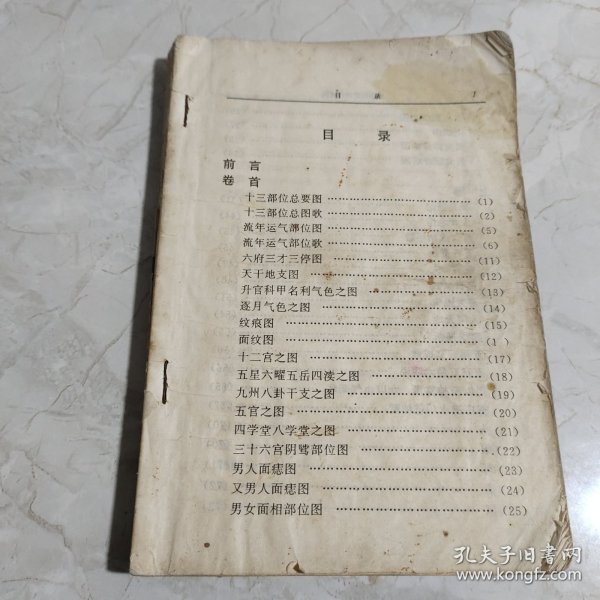 目 录 1
目 录
前 言
卷 首
十三部位总要图 ……………………………… (1)
十三部位总图歌 ……………………………… (2)
流年运气部位图 ……………………………… (5)
流年运气部位歌 ……………………………… (6)
六府三才三停图 ……………………………… (11)
天干地支图 ……………………………… (12)
升官科甲名利气色之图 ……………………………… (13)
逐月气色之图 ……………………………… (14)
纹痕图 ……………………………… (15)
面纹图 ……………………………… (1 )
十二宫之图 ……………………………… (17)
五星六曜五岳四渎之图 ……………………………… (18)
九州八卦干支之图 ……………………………… (19)
五官之图 ……………………………… (20)
四学堂八学堂之图 ……………………………… (21)
三十六宫阴骘部位图 ……………………………… (22)
男人面痣图 ……………………………… (23)
又男人面痣图 ……………………………… (24)
男女面相部位图 ……………………………… (25)
孔夫子旧书网
www.kongfz.com